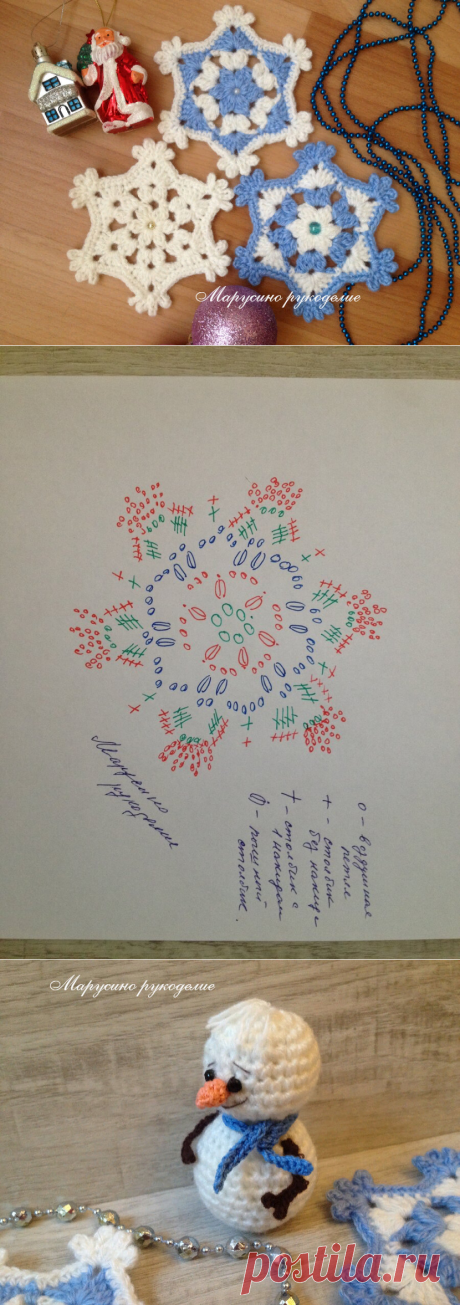 Марусино рукоделие
Марусино
рукоделие
o - воздушная
петля
+ - столбик
без накида
† - столбик с
1 накидом
- пышный
столбик.
Марусино рукоделие
postila.ru